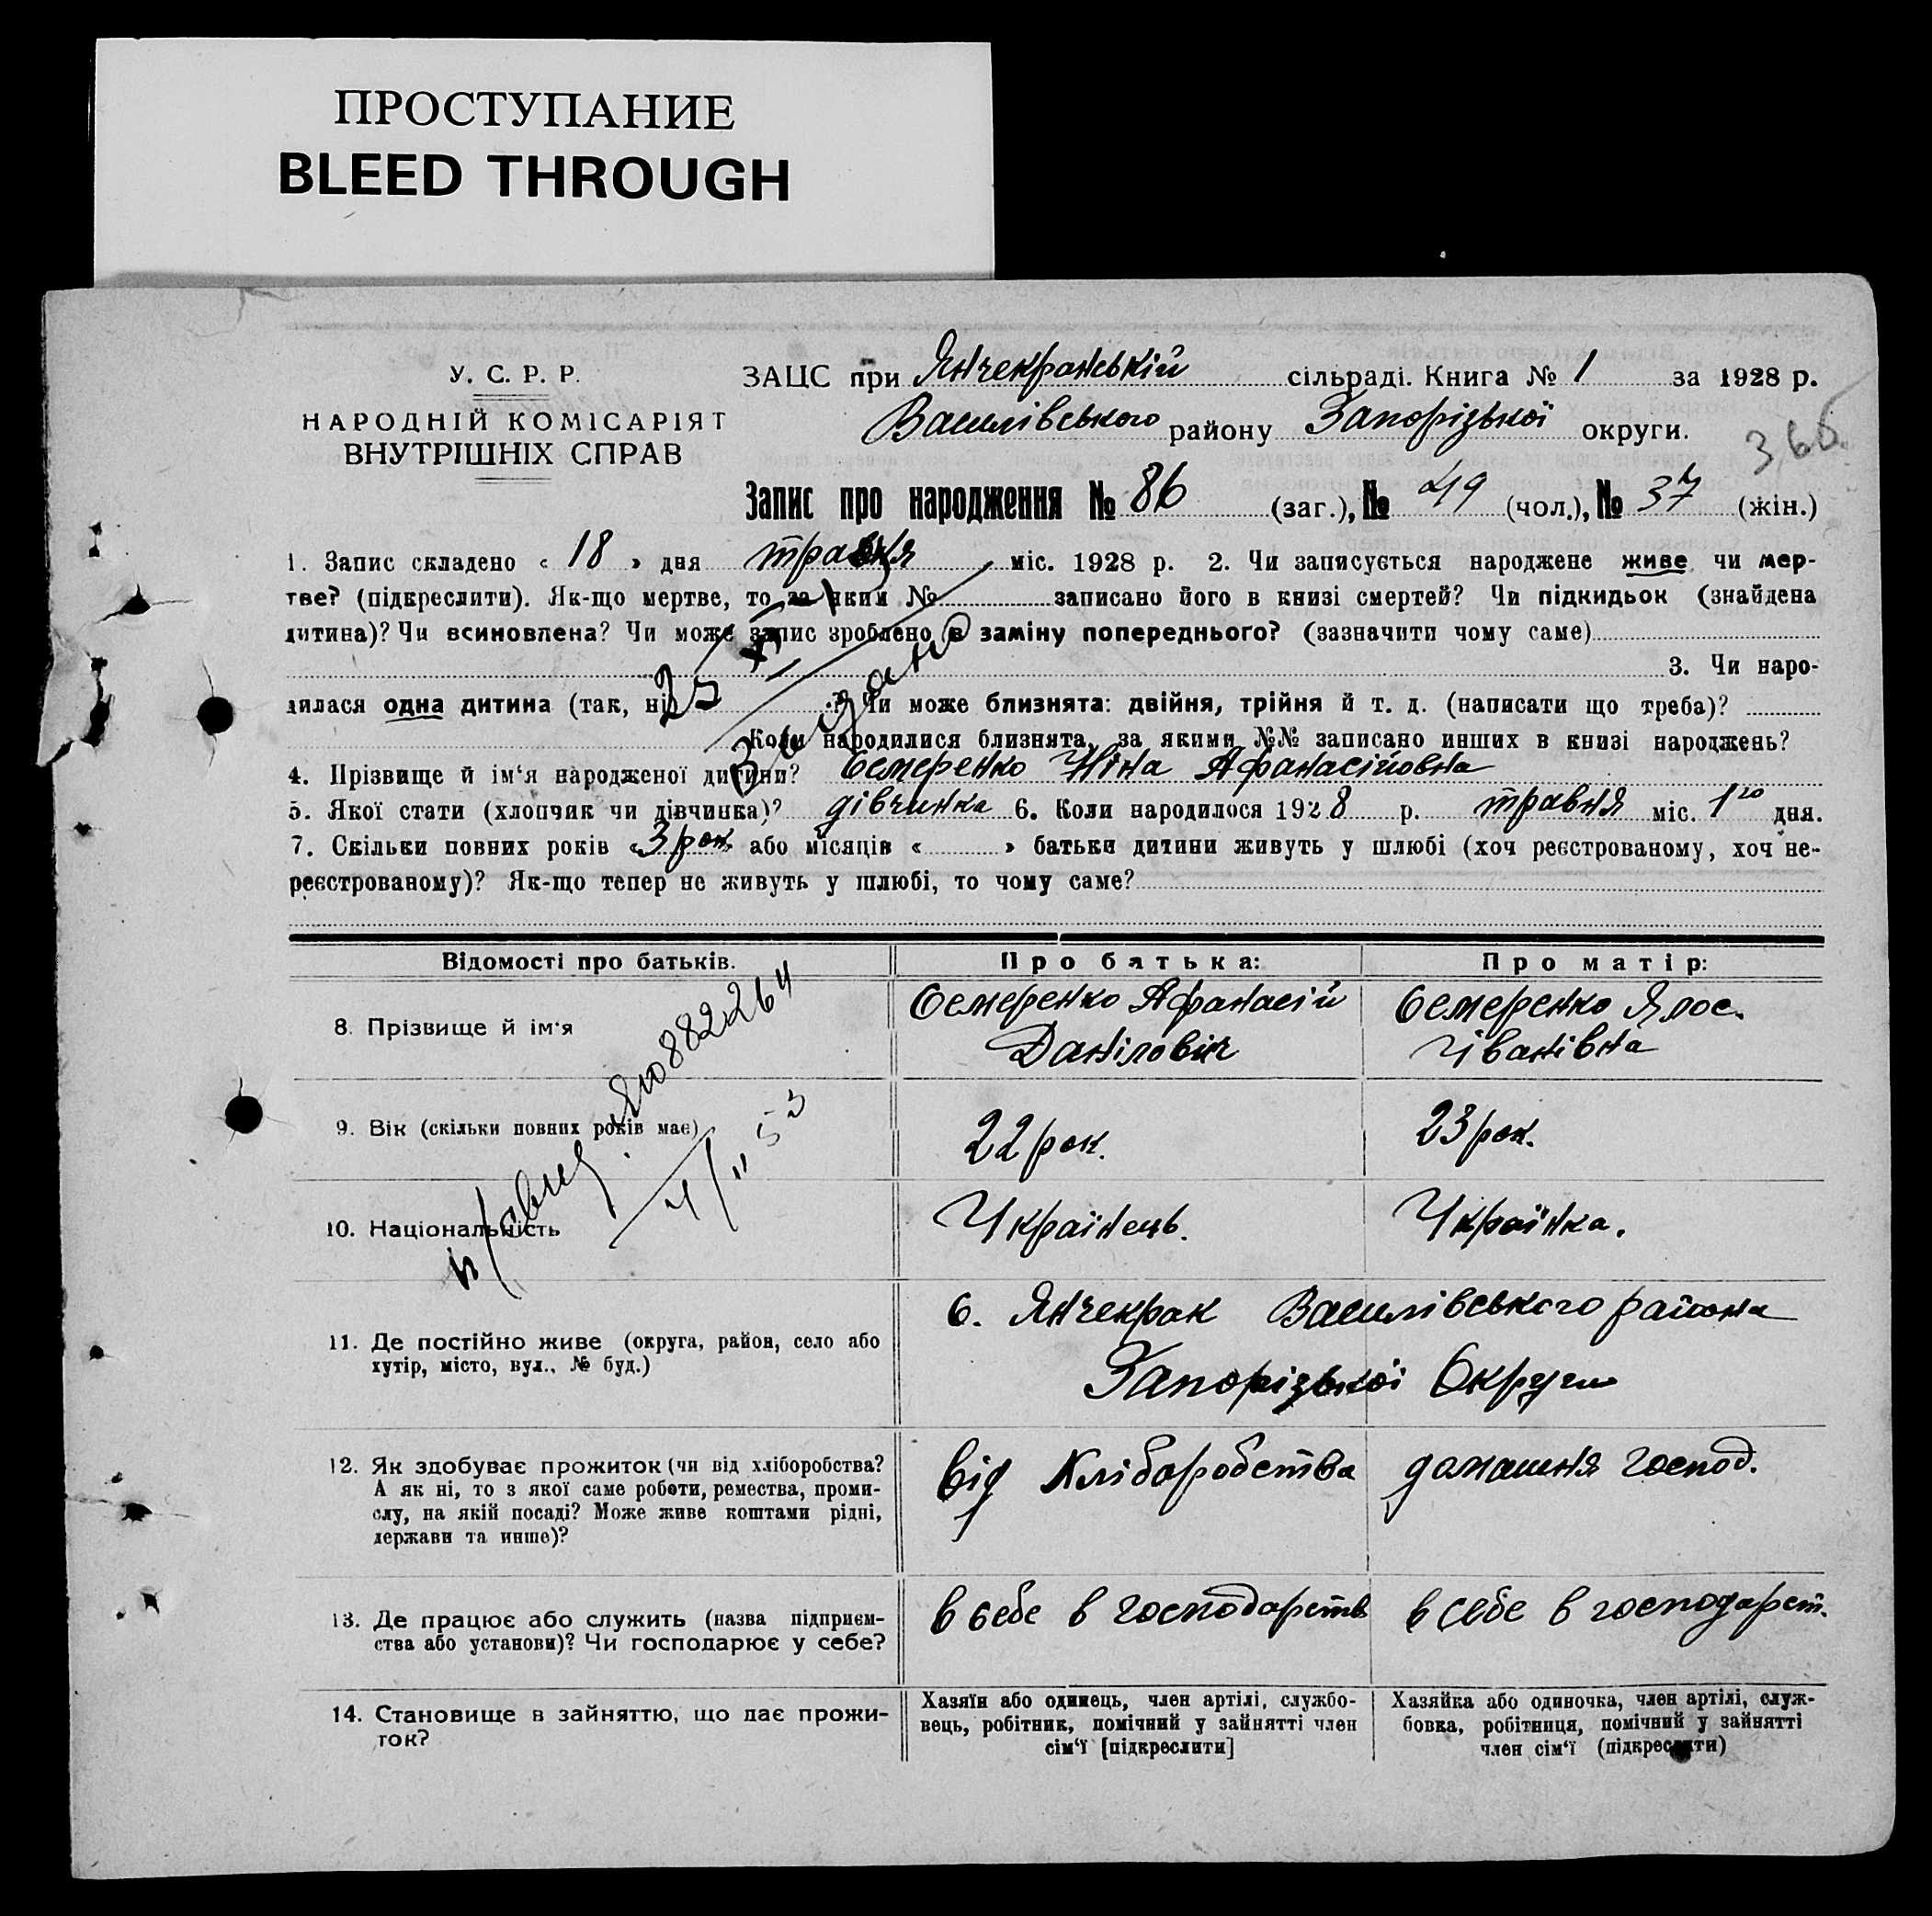 ПРОСТУПАНИЕ
BLEED THROUGH
У. С. Р. Р.
НАРОДНІЙ КОМІСАРІЯТ
ВНУТРІШНІХ СПРАВ
ЗАЦС при Янчекракській сільраді. Книга № 1 за 1928 р.
Василівського району Запорізької округи.
366
Запис про народження № 86 (заг.), № 49 (чол.), № 37 (жін.)
1. Запис складено « 18 » дня травня міс. 1928 р. 2. Чи записується народжене живе чи мер-
тве? (підкреслити). Як-що мертве, то за яким № записано його в книзі смертей? Чи підкидьок (знайдена
дитина)? Чи всиновлена? Чи може запис зроблено в заміну попереднього? (зазначити чому саме)
3. Чи наро-
дилася одна дитина (так, ні) ? Чи може близнята: двійня, трійня й т. д. (написати що треба)?
Коли народилися близнята, за якими №№ записано инших в книзі народжень?
4. Прізвище й ім‘я народженої дитини? Семеренко Ніна Афанасійовна
5. Якої стати (хлопчик чи дівчинка)? дівчинка 6. Коли народилося 1928 р. травня міс. 1го дня.
7. Скільки повних років «3 рок.» або місяців « » батьки дитини живуть у шлюбі (хоч реєстрованому, хоч не-
реєстрованому)? Як-що тепер не живуть у шлюбі, то чому саме?
Видано
Відомості про батьків. Про батька: Про матір:
8. Прізвище й ім‘я
Семеренко Афанасій
Данілович
Семеренко Ялос.
Іванівна
9. Вік (скільки повних років має)
22 рок.
23 рок.
п/свид. ЯЮ882264
10. Національність
Українець.
Українка.
11. Де постійно живе (округа, район, село або
хутір, місто, вул., № буд.)
С. Янчекрак Василівського района
Запорізької Округи
12. Як здобуває прожиток (чи від хліборобства?
А як ні, то з якої саме роботи, ремества, проми-
слу, на якій посаді? Може живе коштами рідні,
держави та инше)?
від Хліборобства
домашня господ.
13. Де працює або служить (назва підприєм-
ства або установи)? Чи господарює у себе?
в себе в господарств
в себе в господарст.
14. Становище в зайняттю, що дає прожи-
ток?
Хазяїн або одинець, член артілі, службо-
вець, робітник, помічний у зайнятті член
сім‘ї [підкреслити]
Хазяйка або одиночка, член артілі, служ-
бовка, робітниця, помічний у зайнятті
член сім‘ї (підкреслити)